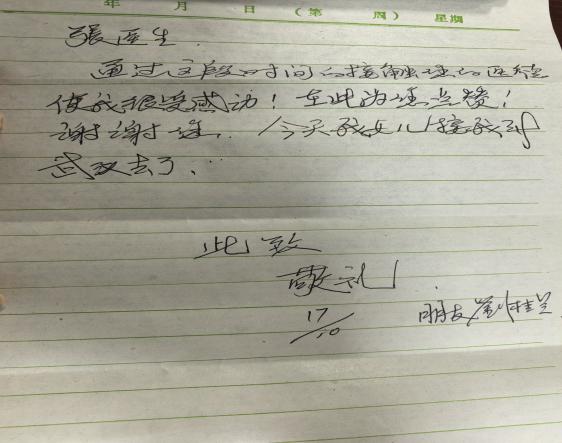 年 月 日 (第 周) 星期
張医生.
通过这段时间的接触您的医德
使我很受感动!在此为您点赞!
谢谢您. 今天我女儿接我到
武汉去了.
此致
敬礼!
17/10 朋友 刘桂呈